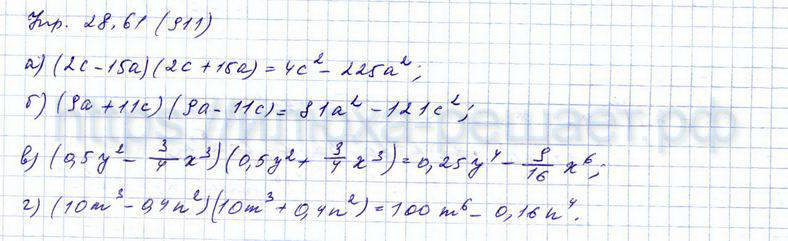 Упр. 28.61 (911)
а) (2c - 15a)(2c + 15a) = 4c² - 225a²;
б) (9a + 11c)(9a - 11c) = 81a² - 121c²;
в) (0,5y² - 3/4 x³)(0,5y² + 3/4 x³) = 0,25y⁴ - 9/16 x⁶;
г) (10m³ - 0,4n²)(10m³ + 0,4n²) = 100m⁶ - 0,16n⁴.